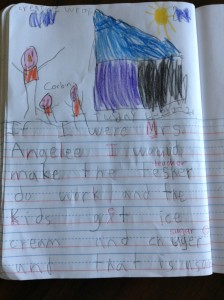 Corbin
If I were Mrs.
Angelee I would
teacher
make the tesher
do work and the
kids get ice
sugar
cream and chuger
and that is